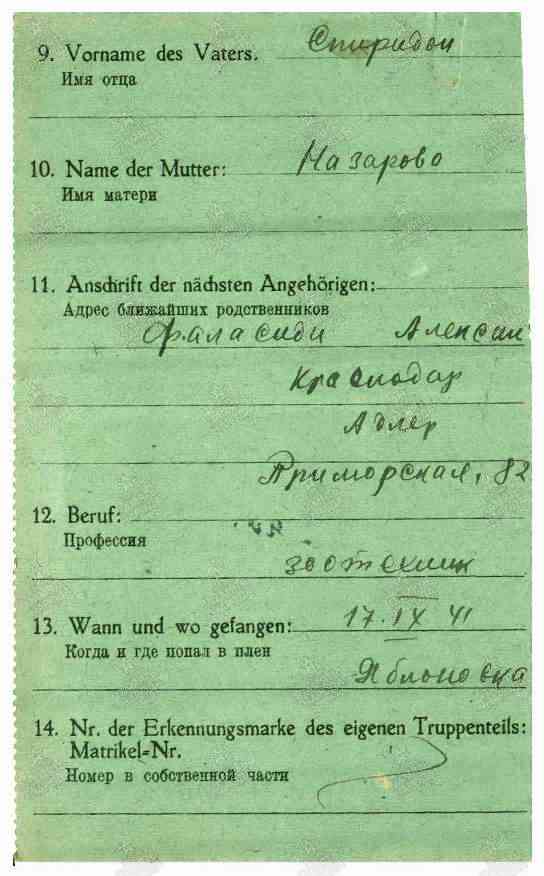 9. Vorname des Vaters. Спиридон
Имя отца
10. Name der Mutter: Назарово
Имя матери
11. Anschrift der nächsten Angehörigen:
Адрес ближайших родственников
Фаласиди Алексан
Краснодар
Адлер
Приморская, 82
12. Beruf:
Профессия
зоотехник
13. Wann und wo gefangen: 17. IX 41
Когда и где попал в плен
Яблоновка
14. Nr. der Erkennungsmarke des eigenen Truppenteils:
Matrikel=Nr.
Номер в собственной части